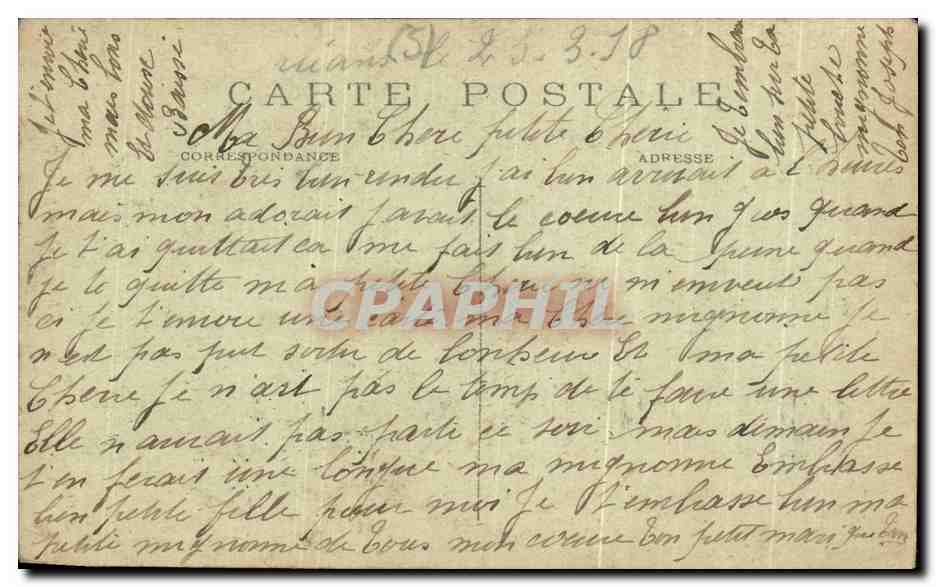 (5) le 25.3.18
CARTE POSTALE
Ma Bien Chere petite Cherie
CORRESPONDANCE ADRESSE
Je me suis tres bien rendu j'ai bien arrivait a 2 heures
mais mon adorait j'avait le coeur bien gros quand
je t'ai quittait ca me fait bien de la peine quand
je te quitte ma petite Cherie ne m'enveut pas
ci je t'envoie une carte ma Chere mignonne je
n'est pas put sortir de bonheur Et ma petite
Cherie je n'ait pas le temp de te faire une lettre
Elle n'aurait pas partie ce soir mais demain je
t'en ferait une longue ma mignonne Embrasse
bien petite fille pour moi je t'embrasse bien ma
petite mignonne de tous mon coeur ton petit mari que
Je t'envoie
ma Cherie
mais bons
et douse
Baisse
Je t'embrasse
bien sur ta
petite
bouche
mignonne
ton Joseph
CPAPHIL